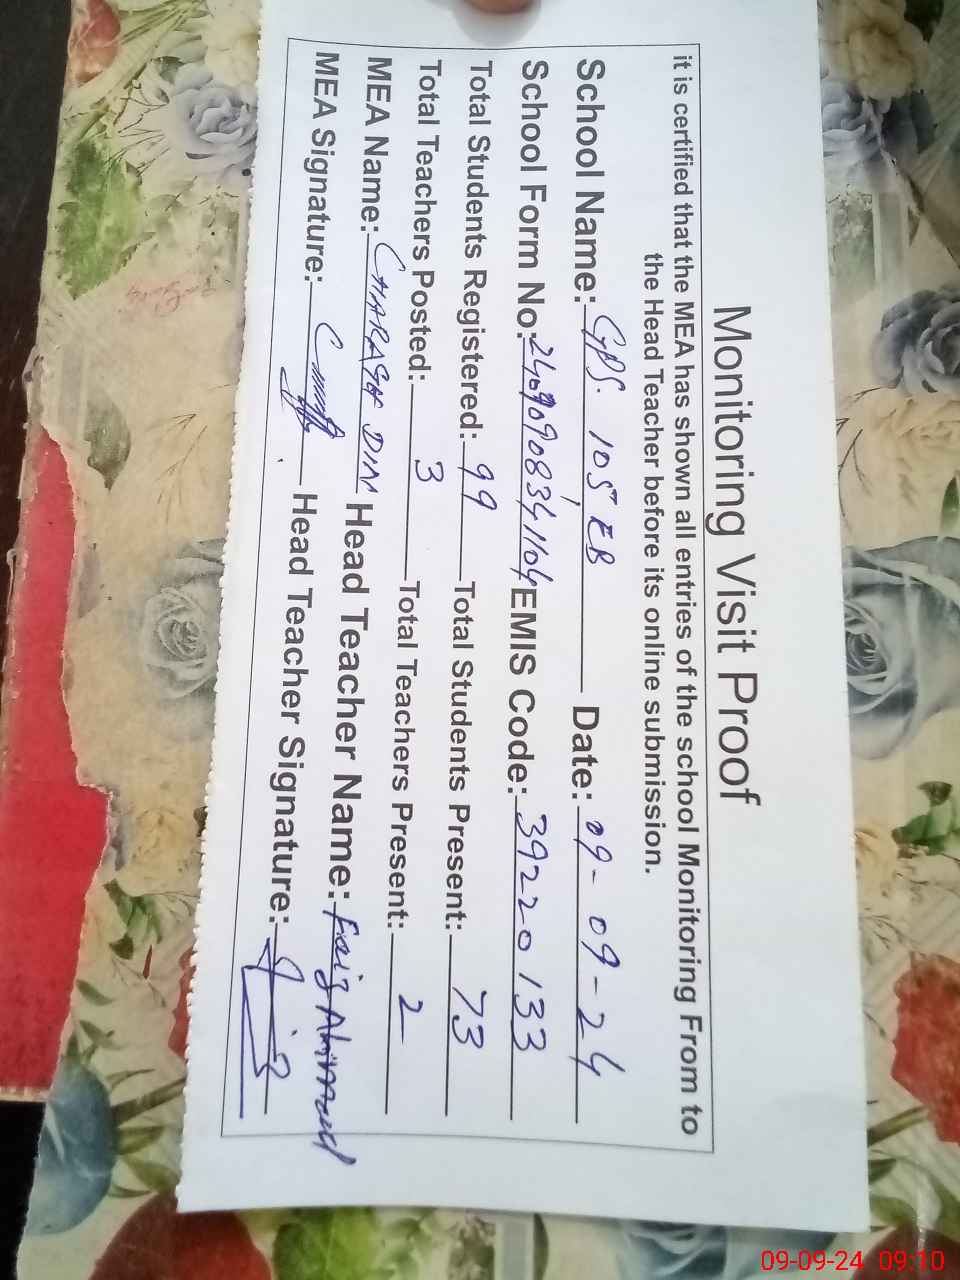 Monitoring Visit Proof
it is certified that the MEA has shown all entries of the school Monitoring From to
the Head Teacher before its online submission.
School Name: GPS. 105 EB Date: 09-09-24
School Form No: 24090908341104 EMIS Code: 39220133
Total Students Registered: 99 Total Students Present: 73
Total Teachers Posted: 3 Total Teachers Present: 2
MEA Name: CHARAGH DIN Head Teacher Name: Faiz Ahmad
MEA Signature: Head Teacher Signature:
09-09-24 09:10